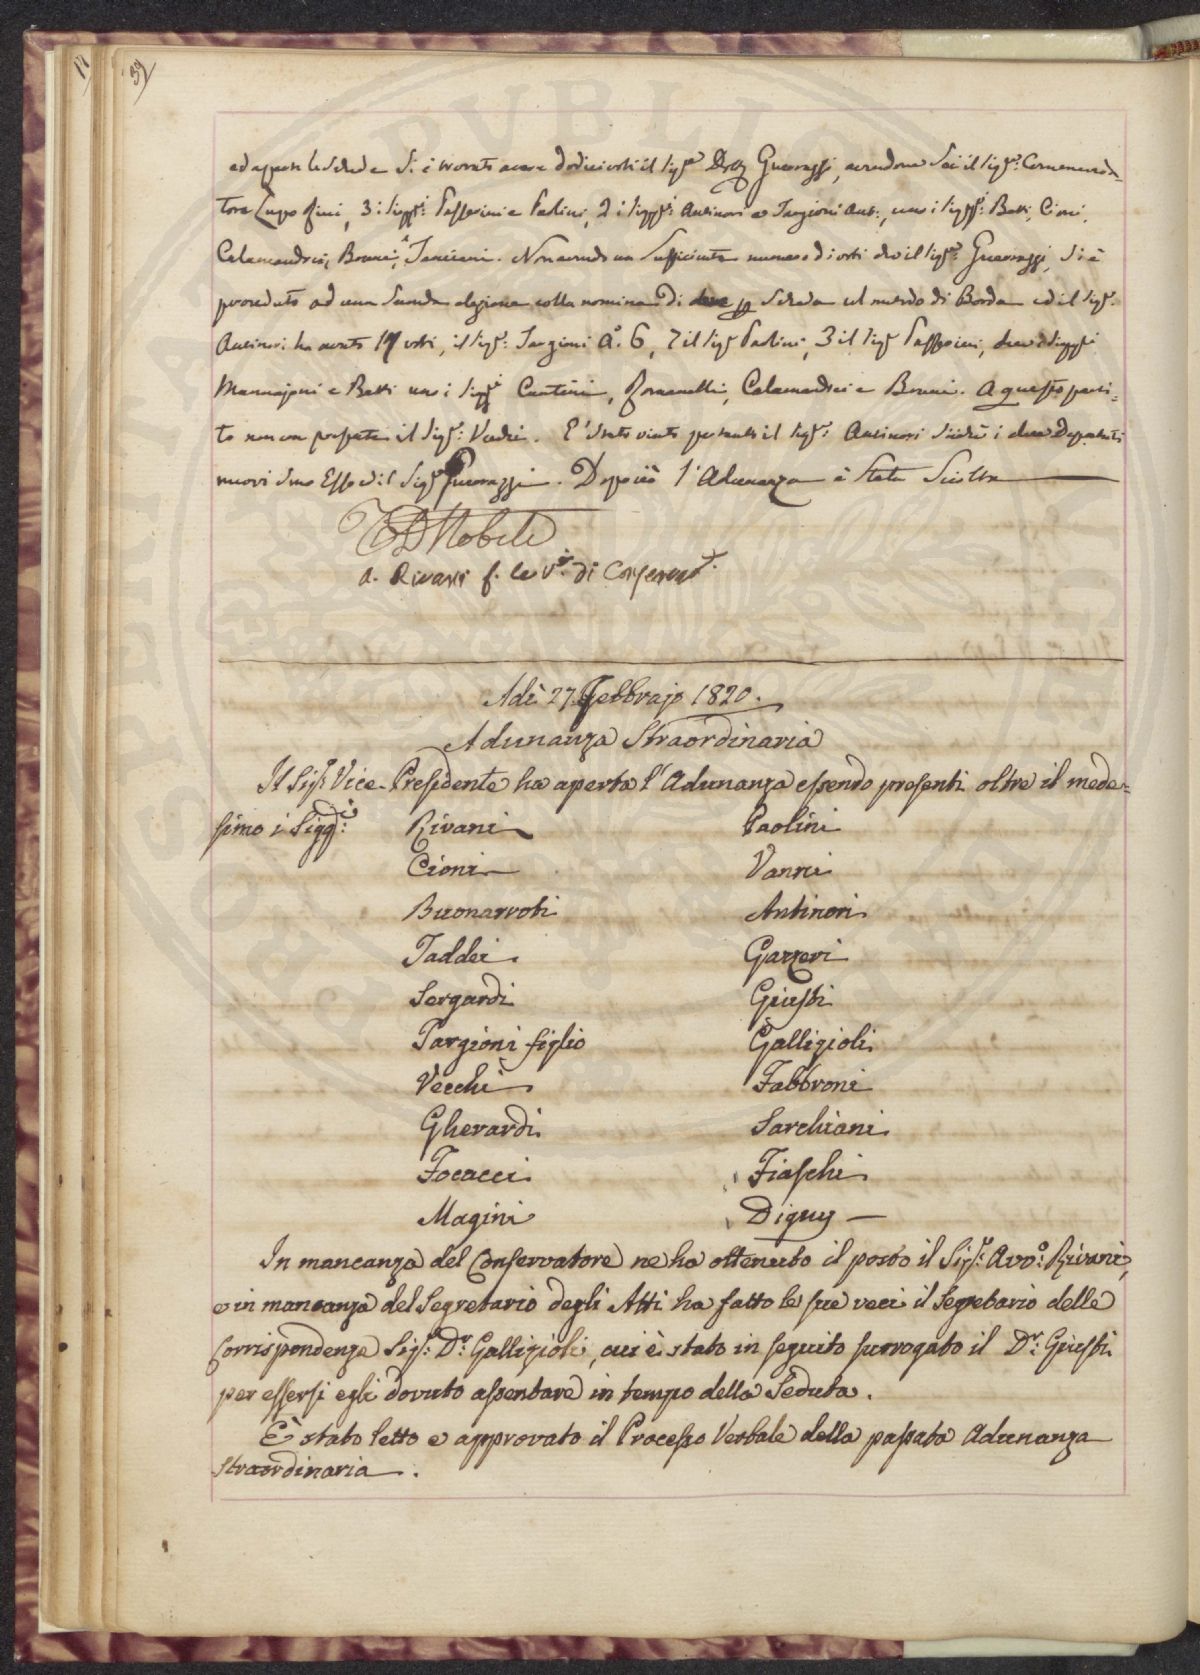 39
ed aperte le schede si è trovato avere dodici voti il Sig.r Dott. Guerrazzi, avendone Sei il Sig.r Commenda=
tore Lapo Ricci, 3 i Sigg.ri Passerini e Paolini, 2 i Sigg.ri Antinori e Targioni Ant:, uno i Sigg.ri Betti, Cioni,
Calamandrei, Brunei, . Non avendo un Sufficiente numero di voti che il Sig.r Guerrazzi, Si è
proceduto ad una Seconda elezione colla nomina di due Scheda nel metodo di Borda ed il Sig.r
Antinori ha avuto 17 voti, il Sig.r Targioni A.o 6, 7 il Sig.r Paolini, 3 il Sig.r Passerini, due i Sigg.ri
Mannajoni e Betti uno i Sigg.ri , , Calamandrei e Brunei. A questo parti=
to non era presente il Sig.r . È stato vinto pertanto il Sig.r Antinori Sicchè i due Deputati
nuovi Sono Esso ed il Sig.r Guerrazzi. Dopo ciò l'Adunanza è Stata Sciolta
Nobili
A. Rivani f. le v. di Conservat.
Adì 27. Febbrajo 1820.
Adunanza Straordinaria
Il Sig.r Vice-Presidente ha aperta l'Adunanza essendo presenti oltre il mede=
simo i Sigg.ri: Rivani Paolini
Cioni Vanni
Buonarroti Antinori
Taddei Gazzeri
Sergardi Giusti
Targioni figlio Galligioli
Vecchi Fabbroni
Gherardi Sarchiani
Focacci Fiaschi
Magini Digny
In mancanza del Conservatore ne ha ottenuto il posto il Sig.r Avv.o Rivani,
e in mancanza del Segretario degli Atti ha fatto le sue veci il Segretario delle
Corrispondenze Sig.r D.r Galligioli, cui è stato in seguito surrogato il D.r Giusti
per essersi egli dovuto assentare in tempo della Seduta.
È stato letto e approvato il Processo Verbale della passata Adunanza
straordinaria.